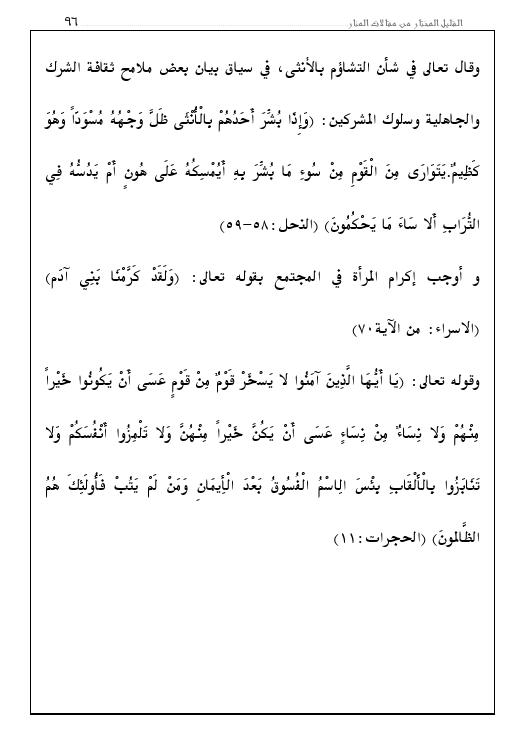 القليل المختار من مقالات المنار ٩٦
وقال تعالى في شأن التشاؤم بالأنثى، في سياق بيان بعض ملامح ثقافة الشرك
والجاهلية وسلوك المشركين: (وَإِذَا بُشِّرَ أَحَدُهُمْ بِالْأُنْثَى ظَلَّ وَجْهُهُ مُسْوَدّاً وَهُوَ
كَظِيمٌ.يَتَوَارَى مِنَ الْقَوْمِ مِنْ سُوءِ مَا بُشِّرَ بِهِ أَيُمْسِكُهُ عَلَى هُونٍ أَمْ يَدُسُّهُ فِي
التُّرَابِ أَلا سَاءَ مَا يَحْكُمُونَ) (النحل:٥٨-٥٩)
و أوجب إكرام المرأة في المجتمع بقوله تعالى: (وَلَقَدْ كَرَّمْنَا بَنِي آدَم)
(الاسراء: من الآية٧٠)
وقوله تعالى: (يَا أَيُّهَا الَّذِينَ آمَنُوا لا يَسْخَرْ قَوْمٌ مِنْ قَوْمٍ عَسَى أَنْ يَكُونُوا خَيْراً
مِنْهُمْ وَلا نِسَاءٌ مِنْ نِسَاءٍ عَسَى أَنْ يَكُنَّ خَيْراً مِنْهُنَّ وَلا تَلْمِزُوا أَنْفُسَكُمْ وَلا
تَنَابَزُوا بِالْأَلْقَابِ بِئْسَ الِاسْمُ الْفُسُوقُ بَعْدَ الْأِيمَانِ وَمَنْ لَمْ يَتُبْ فَأُولَئِكَ هُمُ
الظَّالمونَ) (الحجرات:١١)